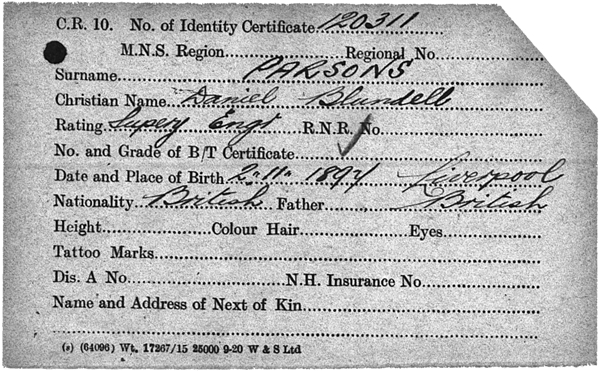 C.R. 10. No. of Identity Certificate 120311
M.N.S. Region Regional No.
Surname PARSONS
Christian Name Daniel Blundell
Rating Supery Engr R.N.R. No.
No. and Grade of B/T Certificate
Date and Place of Birth 2.11. 1894 Liverpool
Nationality British Father British
Height Colour Hair Eyes
Tattoo Marks
Dis. A No. N.H. Insurance No.
Name and Address of Next of Kin
(s) (64096) Wt. 17267/15 25000 9-20 W & S Ltd